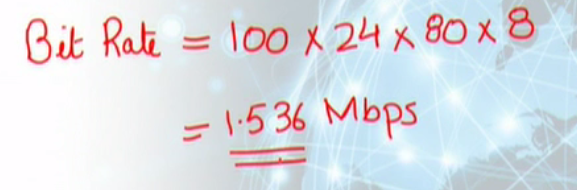 Bit Rate = 100 x 24 x 80 x 8
= 1.536 Mbps